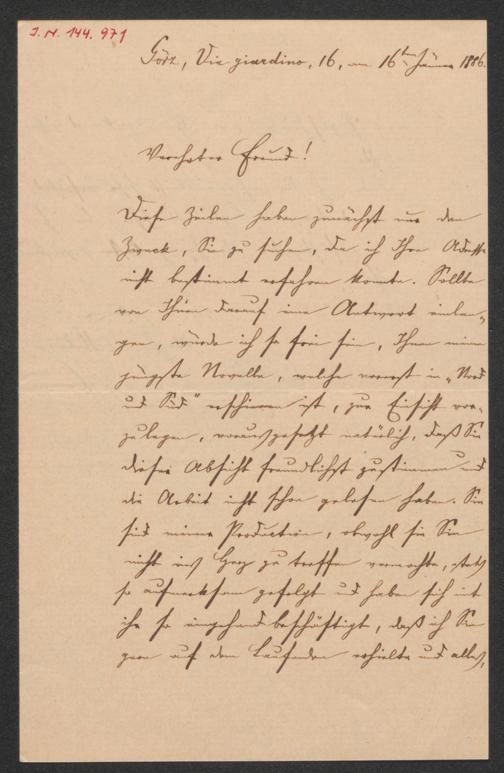 J. N. 144.971
Görz, Via giardino, 16, am 16ten Jänner 1886.
Verehrter Freund!
Diese Zeilen haben zunächst nur den
Zweck, Sie zu suchen, da ich Ihre Adresse
nicht bestimmt erfahren konnte. Sollte
von Ihnen darauf eine Antwort einlan-
gen, würde ich so frei sein, Ihnen meine
jüngste Novelle, welche vorerst in „Nord
und Süd“ erschienen ist, zur Einsicht vor-
zulegen, vorausgesetzt natürlich, daß Sie
dieser Absicht freundlichst zustimmen und
die Arbeit nicht schon gelesen haben. Sie
sind meiner Production, obwohl sie Sie
nicht ins Herz zu treffen vermochte, stets
so aufmerksam gefolgt und haben sich mit
ihr so eingehend beschäftigt, daß ich Sie
gern auf dem Laufenden erhielte und alles,